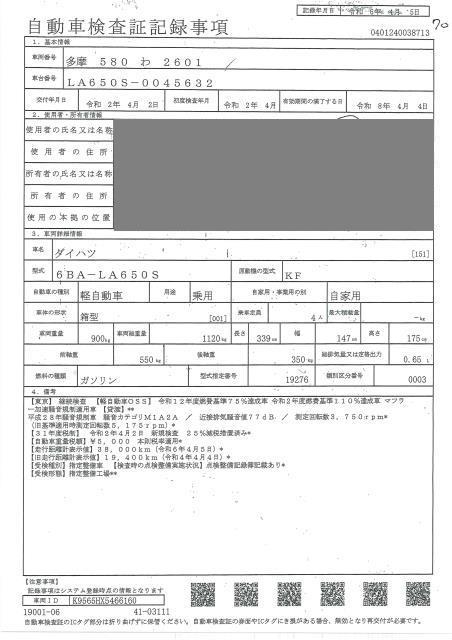 記録年月日 令和 6年 4月 5日
自動車検査証記録事項
0401240038713
70
1. 基本情報
車両番号 多摩 580 わ 2601
車台番号 LA650S-0045632
交付年月日 令和 2年 4月 2日 初度検査年月 令和 2年 4月 有効期間の満了する日 令和 8年 4月 4日
2. 使用者・所有者情報
使用者の氏名又は名称
使用者の住所
所有者の氏名又は名称
所有者の住所
使用の本拠の位置
3. 車両詳細情報
車名 ダイハツ [151]
型式 6BA-LA650S 原動機の型式 KF
自動車の種別 軽自動車 用途 乗用 自家用・事業用の別 自家用
車体の形状 箱型 [001] 乗車定員 4人 最大積載量 -kg
車両重量 900kg 車両総重量 1120kg 長さ 339cm 幅 147cm 高さ 175cm
前軸重 550kg 後軸重 350kg 総排気量又は定格出力 0.65 l
燃料の種類 ガソリン 型式指定番号 19276 類別区分番号 0003
4. 備考
[東京] 継続検査 【軽自動車OSS】 令和12年度燃費基準75%達成車 令和2年度燃費基準110%達成車 マフラ
ー加速騒音規制適用車 【貸渡】**
平成28年騒音規制車 騒音カテゴリM1A2A / 近接排気騒音値77dB / 測定回転数3,750rpm*
(旧基準適用時測定回転数5,175rpm)*
【31年度税制】 令和2年4月2日 新規検査 25%減税措置済み*
【自動車重量税額】¥5,000 本則税率適用*
【走行距離計表示値】38,000km(令和6年4月5日)*
【旧走行距離計表示値】19,400km(令和4年4月4日)*
【受検種別】指定整備車 【検査時の点検整備実施状況】点検整備記録簿記載あり*
【受検形態】指定整備工場**
【注意事項】
記録事項はシステム登録時点の情報となります
車両ID K9565HX5466160
19001-06 41-03111
自動車検査証のICタグ部分は折り曲げずに保管ください。自動車検査証の券面やICタグにき損がある場合、無効となり再交付が必要です。